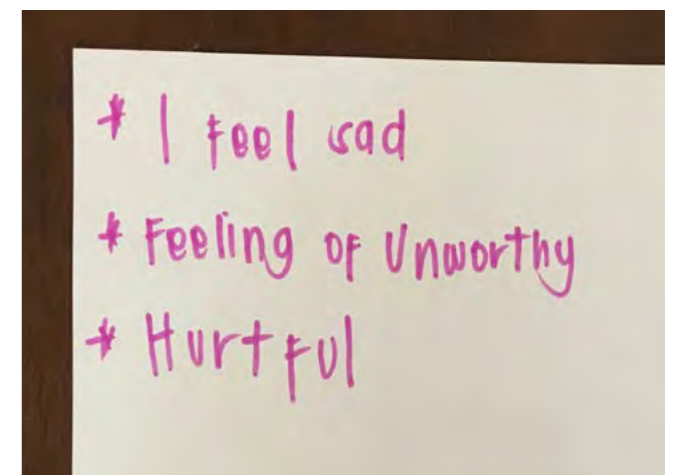 * I feel sad
* Feeling of Unworthy
* Hurtful